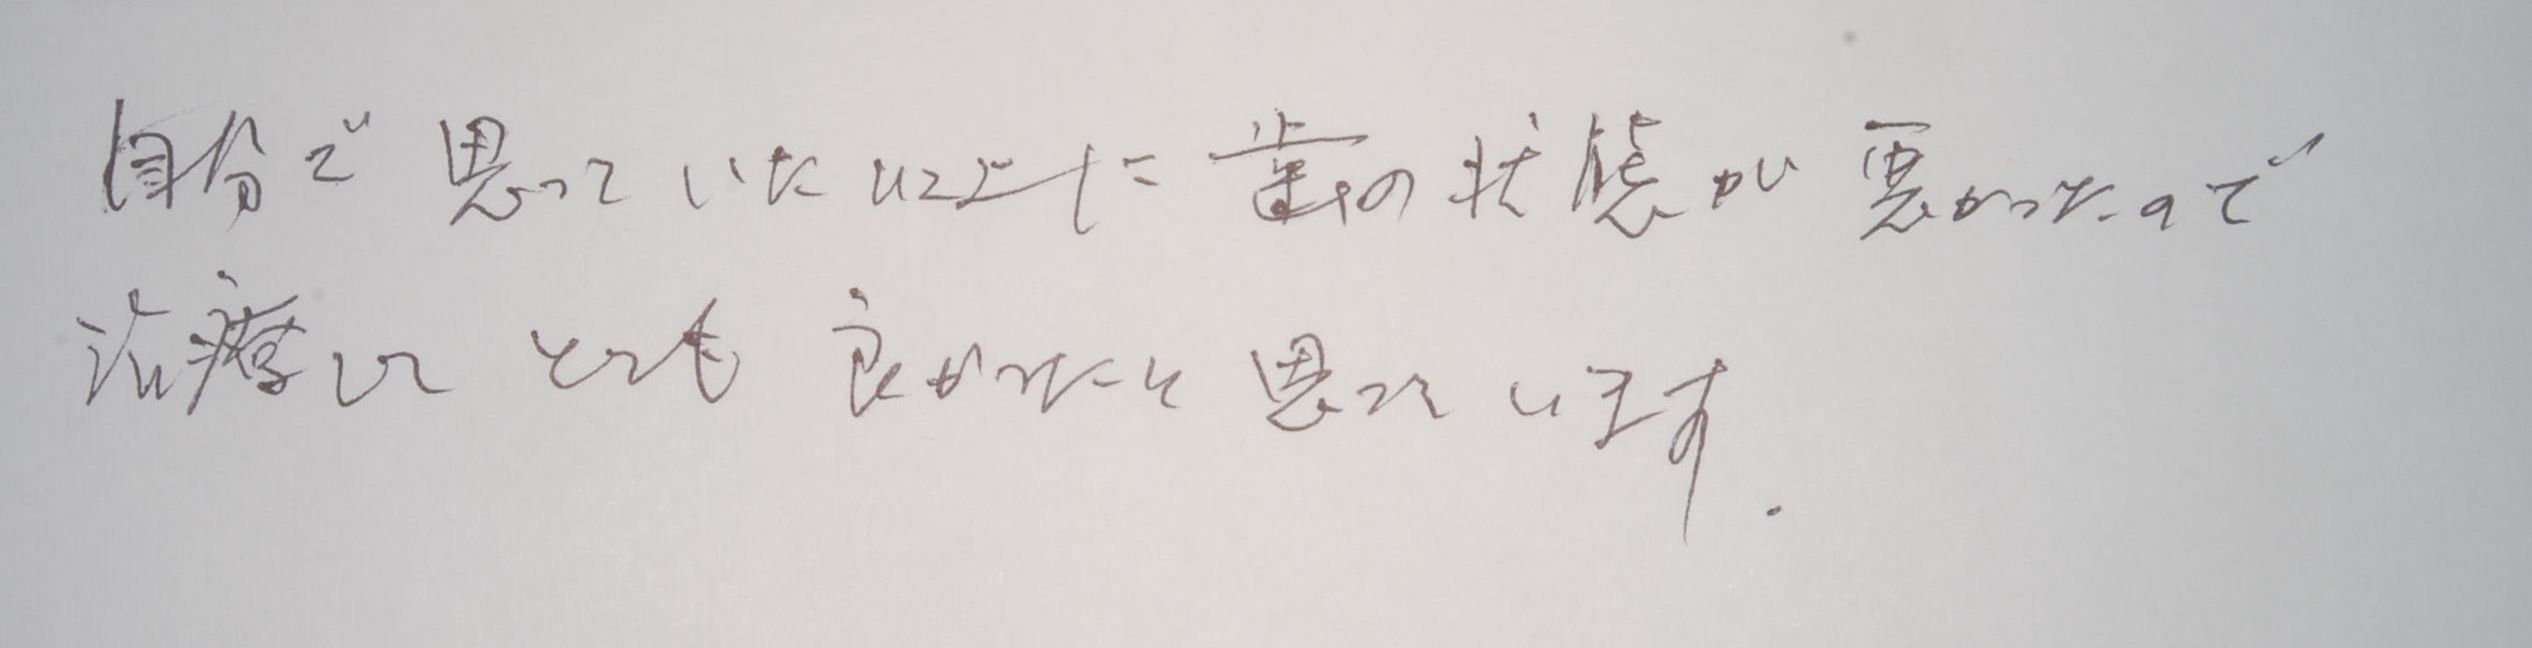 自分で思っていた以上に歯の状態が悪かったので
治療してとても良かったと思っています.